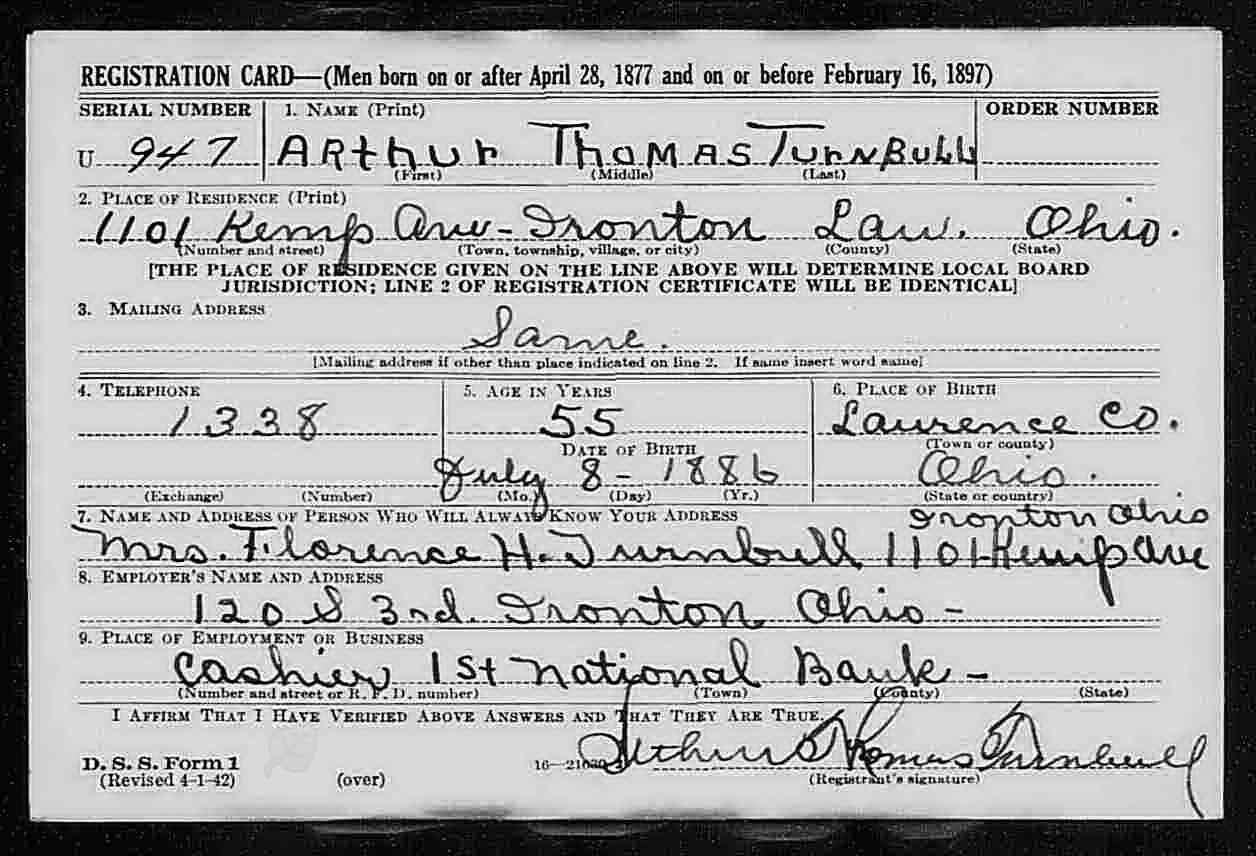 REGISTRATION CARD—(Men born on or after April 28, 1877 and on or before February 16, 1897)
SERIAL NUMBER 1. NAME (Print) ORDER NUMBER
U 947 ARthur ThoMAS TurNBULL
(First) (Middle) (Last)
2. PLACE OF RESIDENCE (Print)
1101 Kemp Ave - Ironton Law. Ohio.
(Number and street) (Town, township, village, or city) (County) (State)
[THE PLACE OF RESIDENCE GIVEN ON THE LINE ABOVE WILL DETERMINE LOCAL BOARD
JURISDICTION; LINE 2 OF REGISTRATION CERTIFICATE WILL BE IDENTICAL]
3. MAILING ADDRESS
Same.
[Mailing address if other than place indicated on line 2. If same insert word same]
4. TELEPHONE 5. AGE IN YEARS 6. PLACE OF BIRTH
1338 55 Lawrence CO.
DATE OF BIRTH (Town or county)
July 8 - 1886 Ohio.
(Exchange) (Number) (Mo.) (Day) (Yr.) (State or country)
7. NAME AND ADDRESS OF PERSON WHO WILL ALWAYS KNOW YOUR ADDRESS Ironton Ohio
Mrs. Florence H. Turnbull 1101 Kemp Ave
8. EMPLOYER'S NAME AND ADDRESS
120 S 3rd. Ironton Ohio -
9. PLACE OF EMPLOYMENT OR BUSINESS
Cashier 1st National Bank -
(Number and street or R. F. D. number) (Town) (County) (State)
I AFFIRM THAT I HAVE VERIFIED ABOVE ANSWERS AND THAT THEY ARE TRUE.
D. S. S. Form 1 Arthur Thomas Turnbull
(Revised 4-1-42) (over) (Registrant's signature)